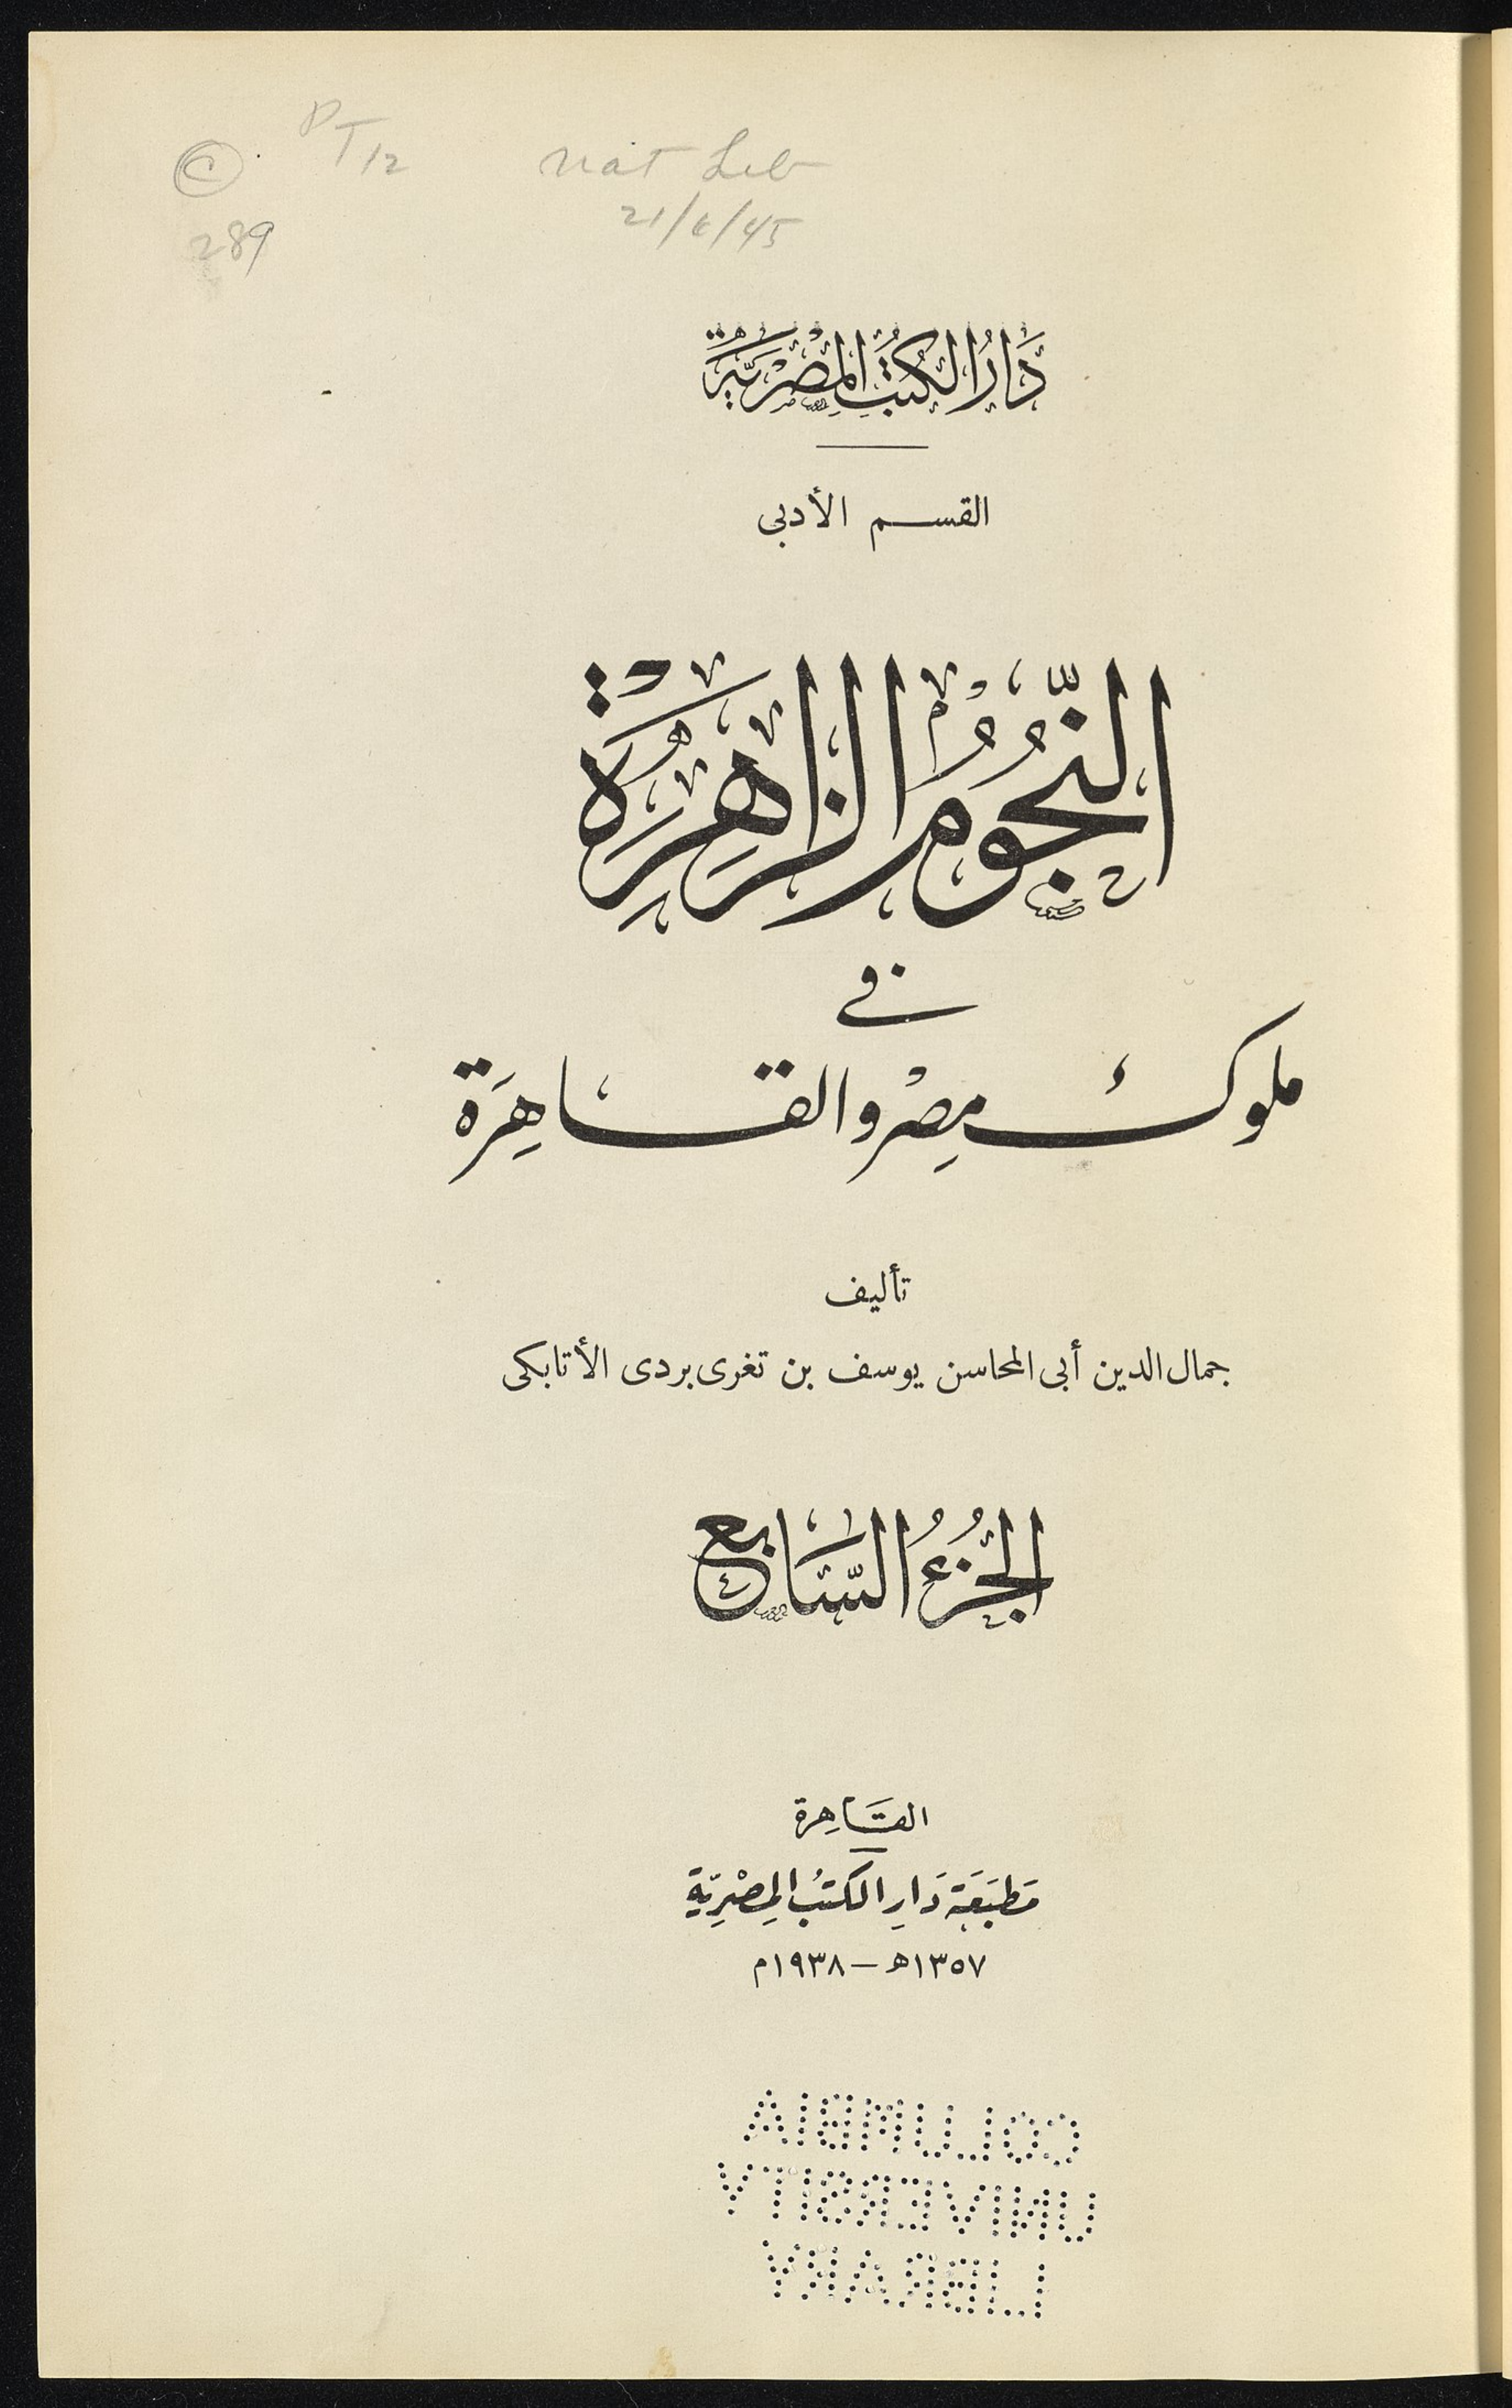 PT12 Nat Lib
© 289 21/6/45
دَارُ الكُتُبِ المِصْرِيَّةِ
القسم الأدبى
النُّجُومُ الزَّاهِرَةُ
فى
ملوك مِصْر والقاهِرَة
تأليف
جمال الدين أبى المحاسن يوسف بن تغرى بردى الأتابكى
الجُزْءُ السَّابِع
القَاهِرة
مَطبَعَة دَارِ الكتبُ المِصْرِيَّةِ
١٣٥٧ﻫ — ١٩٣٨م
COLUMBIA
UNIVERSITY
LIBRARY